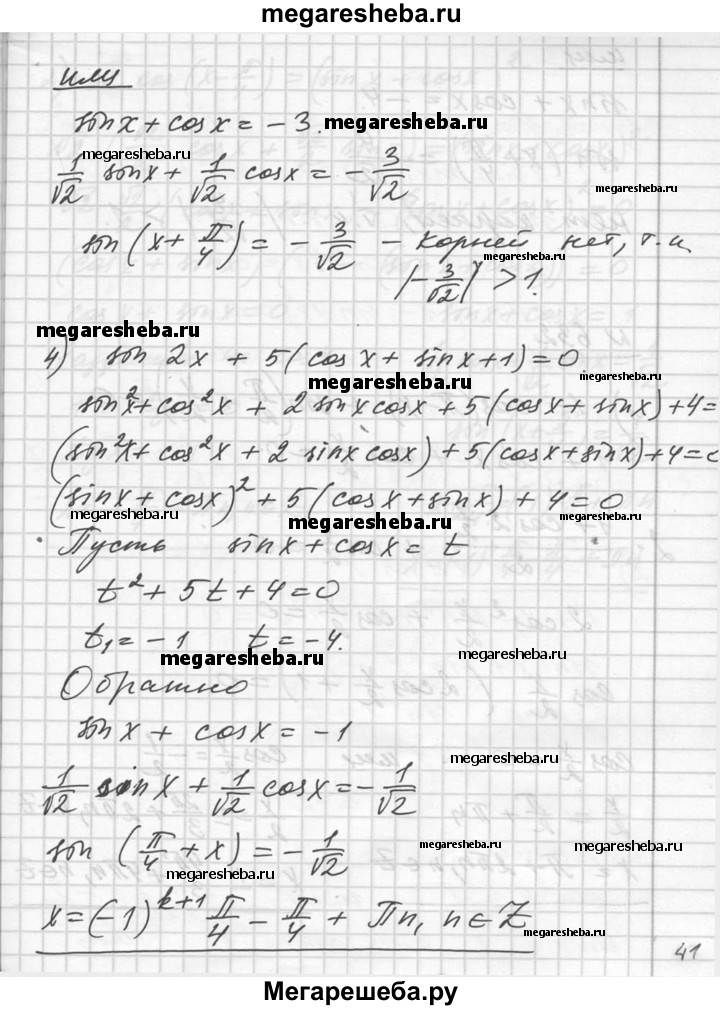 megaresheba.ru
или
sin x + cos x = – 3. megaresheba.ru
megaresheba.ru
1/√2 sin x + 1/√2 cos x = – 3/√2
megaresheba.ru
sin (x + π/4) = – 3/√2 – корней нет, т.к.
megaresheba.ru
|– 3/√2| > 1.
megaresheba.ru
4) sin 2x + 5(cos x + sin x + 1) = 0
megaresheba.ru
sin²x + cos²x + 2 sin x cos x + 5(cos x + sin x) + 4 =
megaresheba.ru megaresheba.ru
(sin²x + cos²x + 2 sin x cos x) + 5(cos x + sin x) + 4 = 0
(sin x + cos x)² + 5(cos x + sin x) + 4 = 0
megaresheba.ru megaresheba.ru megaresheba.ru
Пусть sin x + cos x = t
t² + 5t + 4 = 0
t₁ = – 1 t = – 4.
megaresheba.ru megaresheba.ru
Обратно
sin x + cos x = – 1
megaresheba.ru
1/√2 sin x + 1/√2 cos x = – 1/√2
megaresheba.ru
sin (π/4 + x) = – 1/√2
megaresheba.ru megaresheba.ru
x = (–1)^(k+1) π/4 – π/4 + πn, n ∈ Z
megaresheba.ru megaresheba.ru
41
Мегарешеба.ру